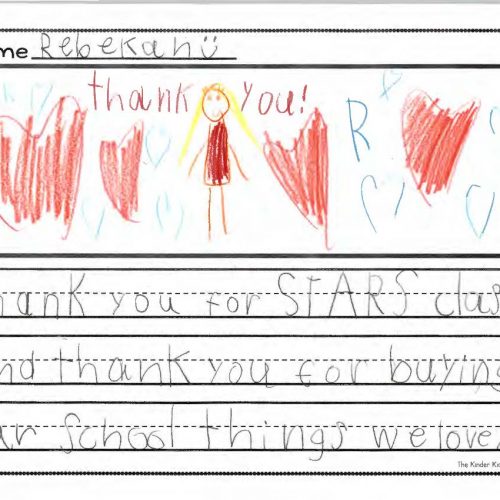 me Rebekah
thank you!
R
hank you for STARS clas
nd thank you for buying
ur School things we love
The Kinder Ki